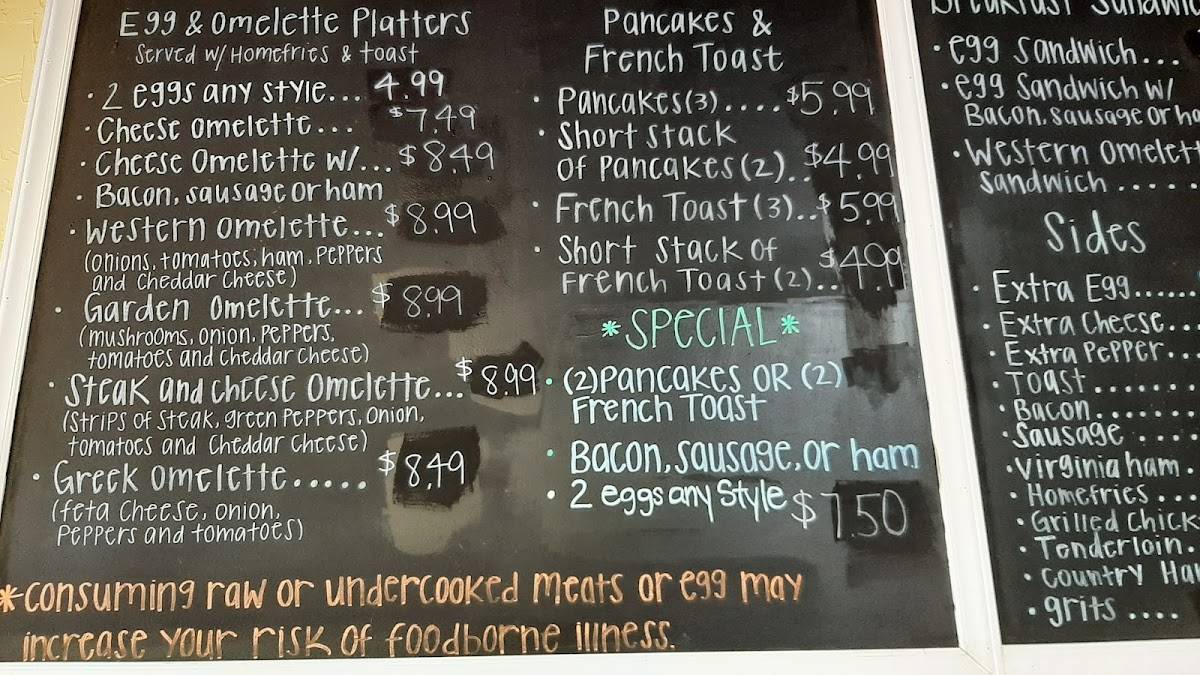 Egg & Omelette Platters
Served w/ Homefries & toast
• 2 eggs any style... 4.99
• Cheese omelette... $7.49
• Cheese Omelette w/... $8.49
• Bacon, sausage or ham
• Western omelette... $8.99
(onions, tomatoes, ham, peppers
and cheddar cheese)
• Garden omelette... $8.99
(mushrooms, onion, peppers,
tomatoes and cheddar cheese)
• Steak and cheese omelette... $8.99
(strips of steak, green peppers, onion,
tomatoes and cheddar cheese)
• Greek omelette..... $8.49
(feta cheese, onion,
peppers and tomatoes)
Pancakes &
French Toast
• Pancakes (3).... $5.99
• Short stack
of pancakes (2).. $4.99
• French Toast (3).. $5.99
• Short stack of
French Toast (2).. $4.99
*SPECIAL*
• (2) Pancakes OR (2)
French Toast
• Bacon, sausage, or ham
• 2 eggs any style $7.50
*consuming raw or undercooked meats or egg may
increase your risk of foodborne illness.
Breakfast
• egg sandwich...
• egg sandwich w/
Bacon, sausage or
• Western
sandwich.....
Sides
• Extra Egg......
• Extra Cheese..
• Extra Pepper..
• Toast.......
• Bacon......
• Sausage....
• Virginia ham.
• Homefries...
• Grilled
• Tenderloin.
• Country
• grits....